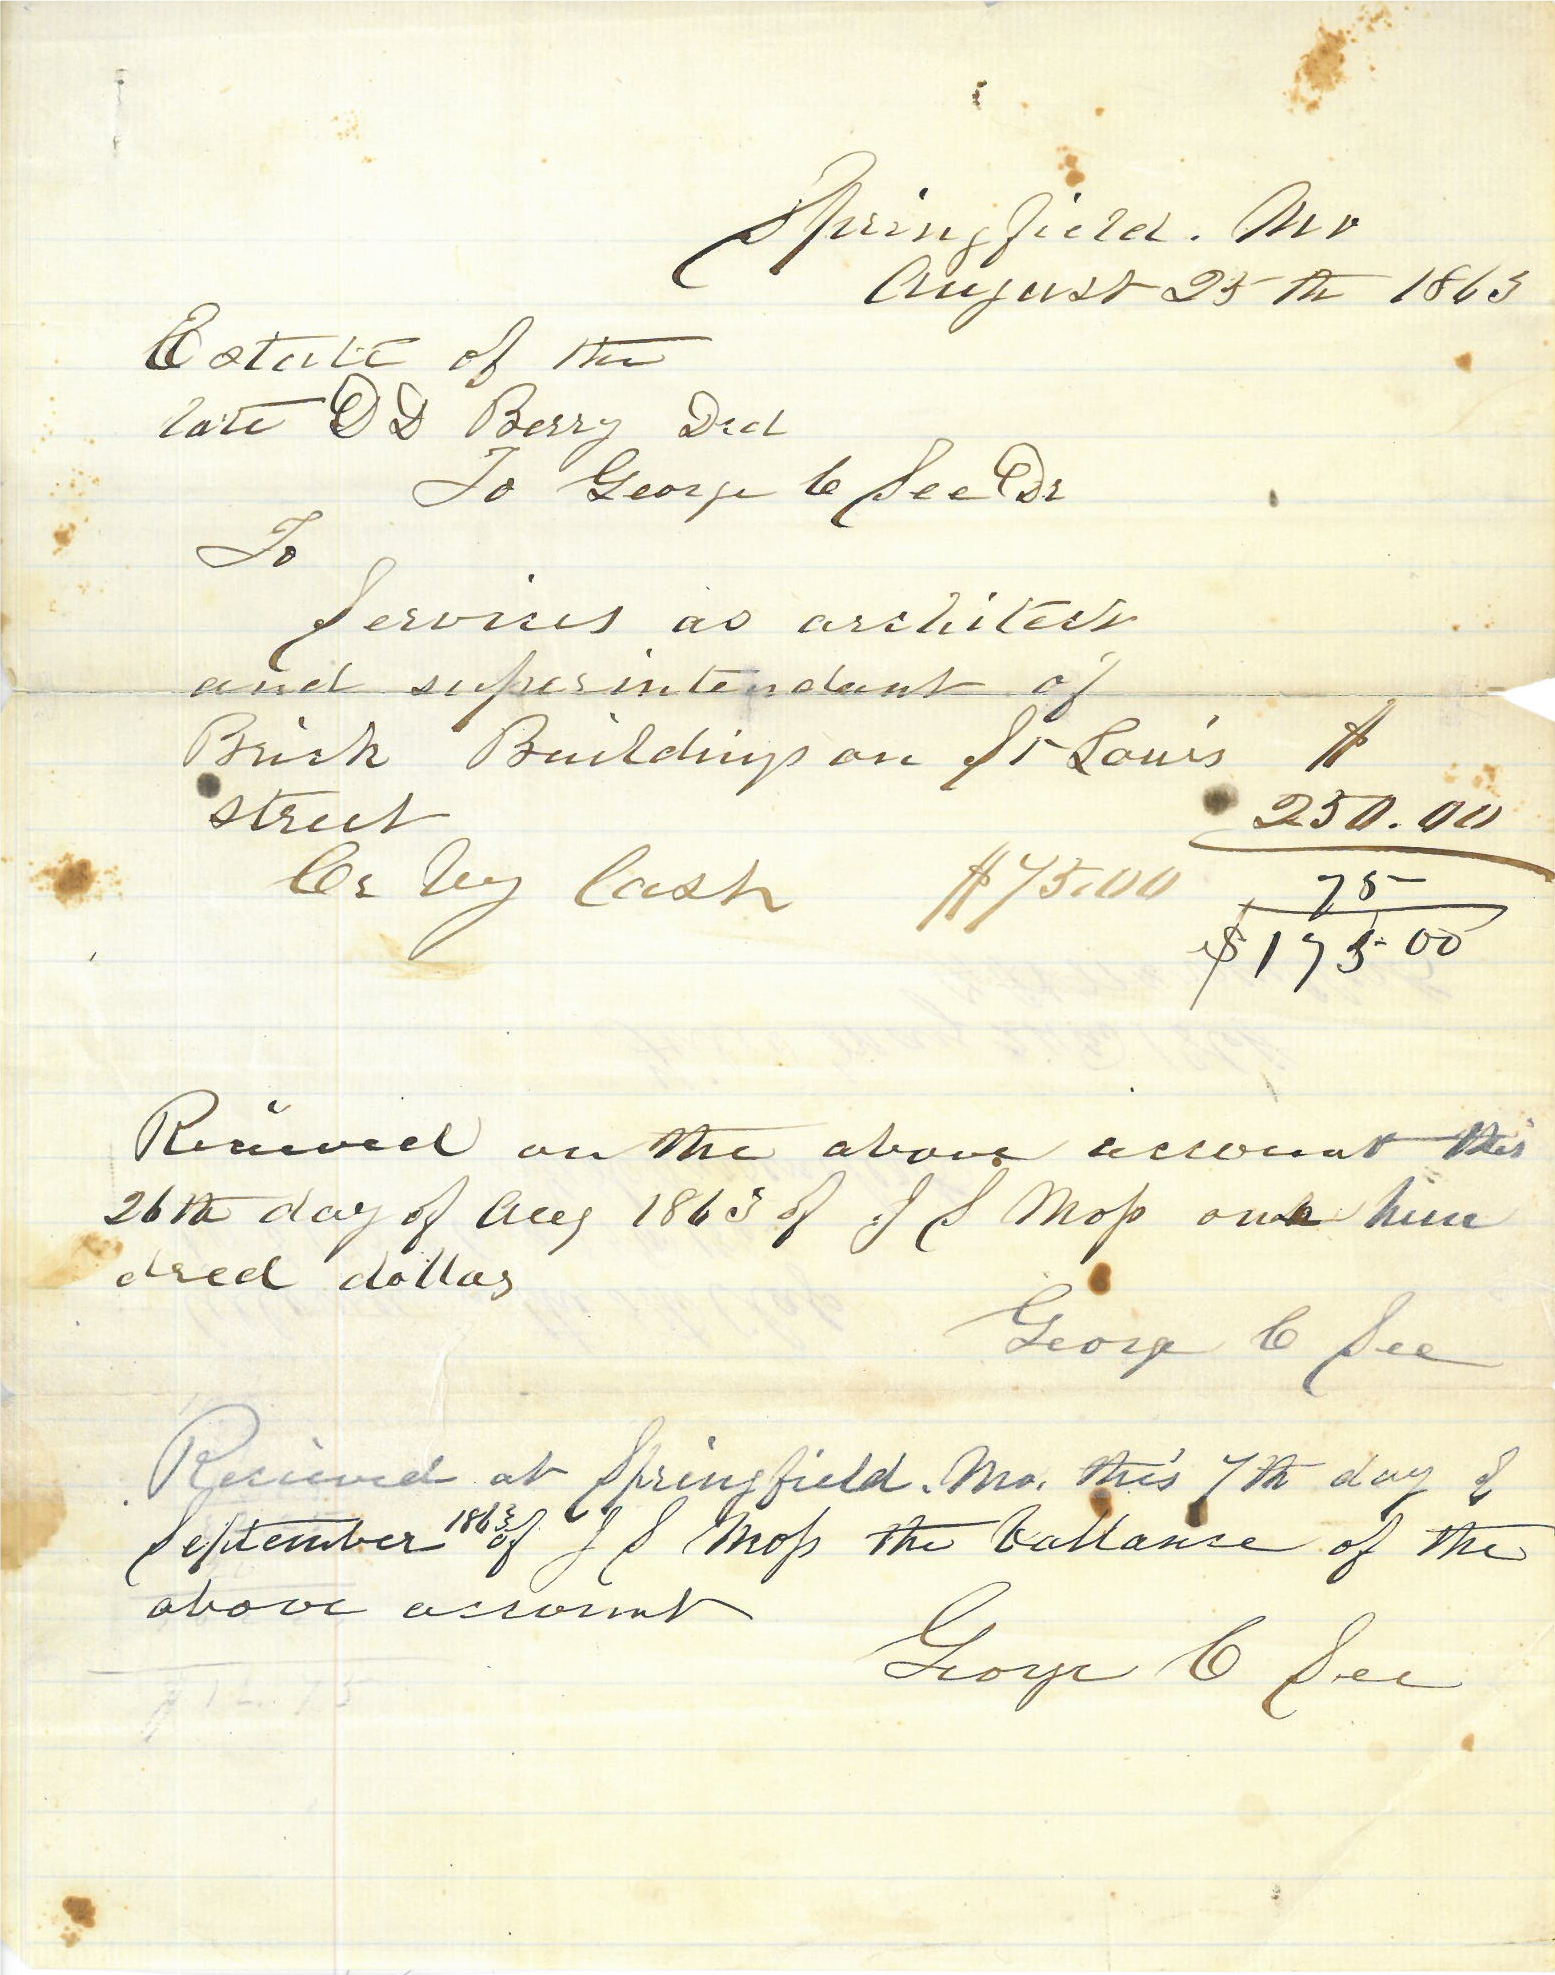 Springfield. Mo
August 25th 1863
Estate of the
late D D Berry Decd
To George C See Dr
To
Services as architect
and superintendant of
Brick Buildings on St Louis $
street 250.00
Cr by Cash $75.00 75
$175.00
Recieved on the above account this
26th day of Aug 1863 of J S Moss one hun
dred dollas
George C See
Recieved at Springfield. Mo. this 7th day of
September 1863 of J S Moss the ballance of the
above account
George C See